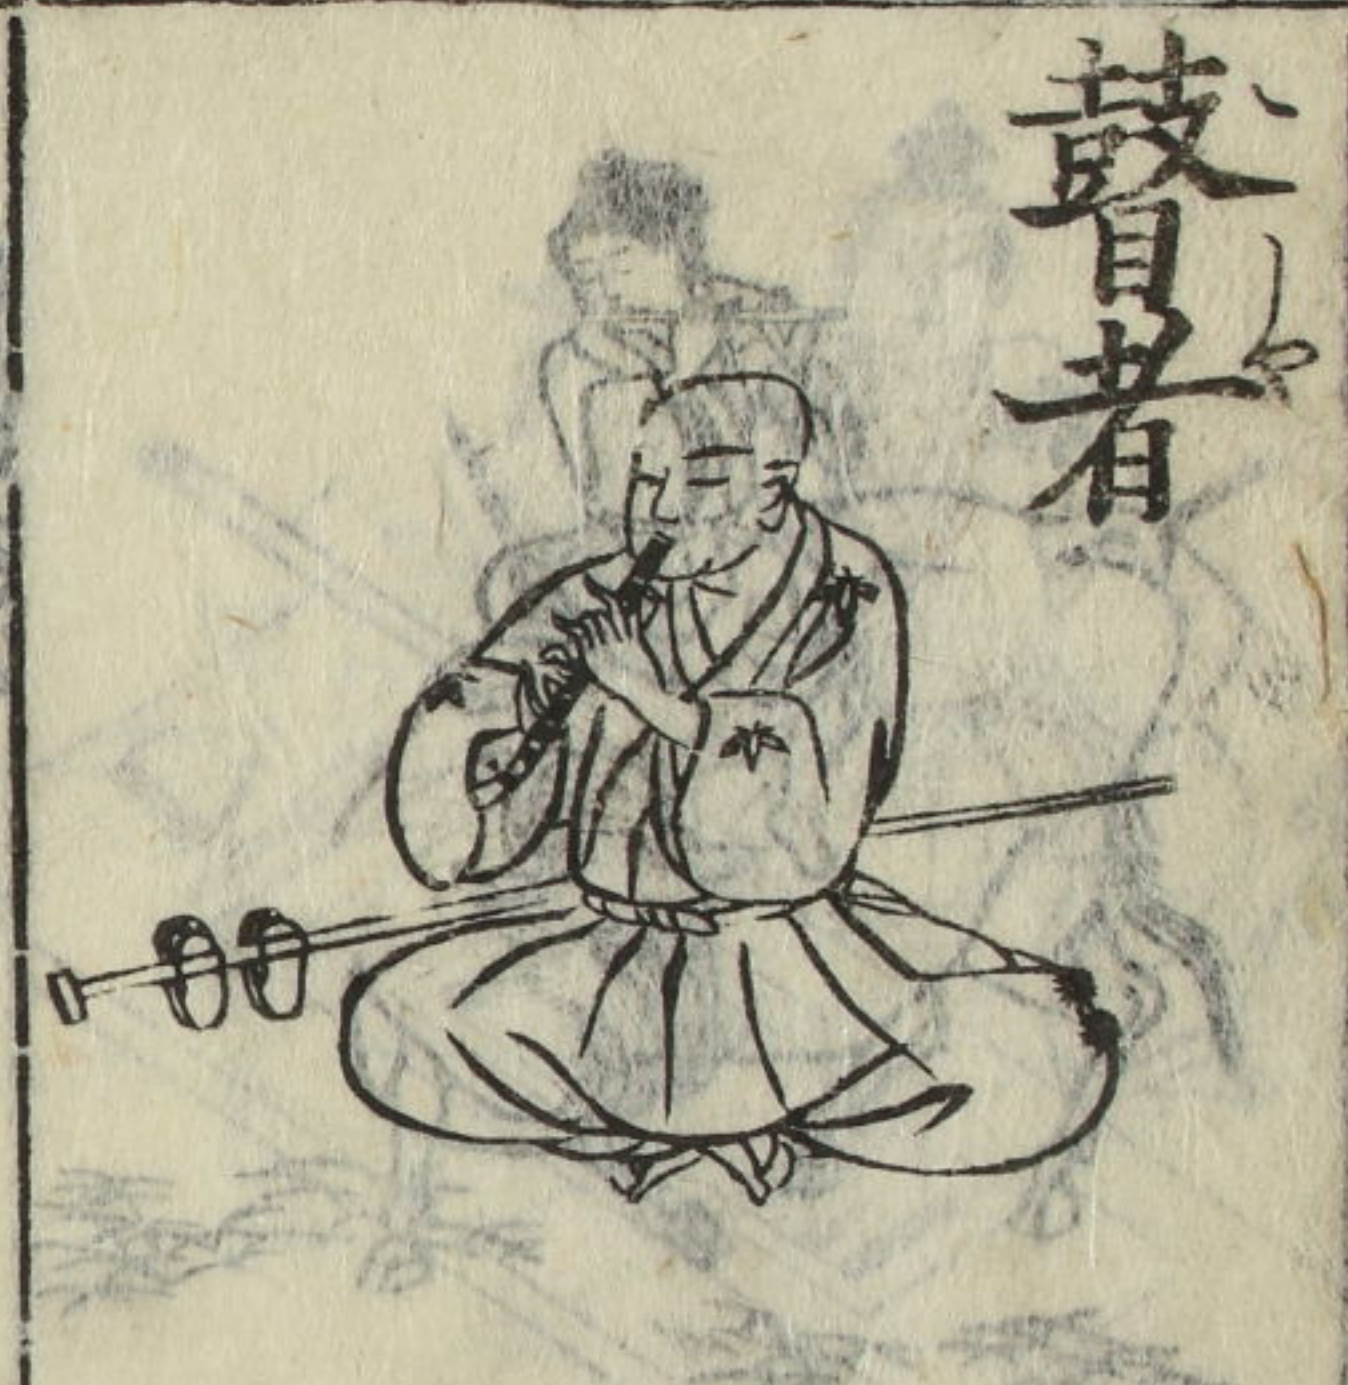 瞽者
こしや